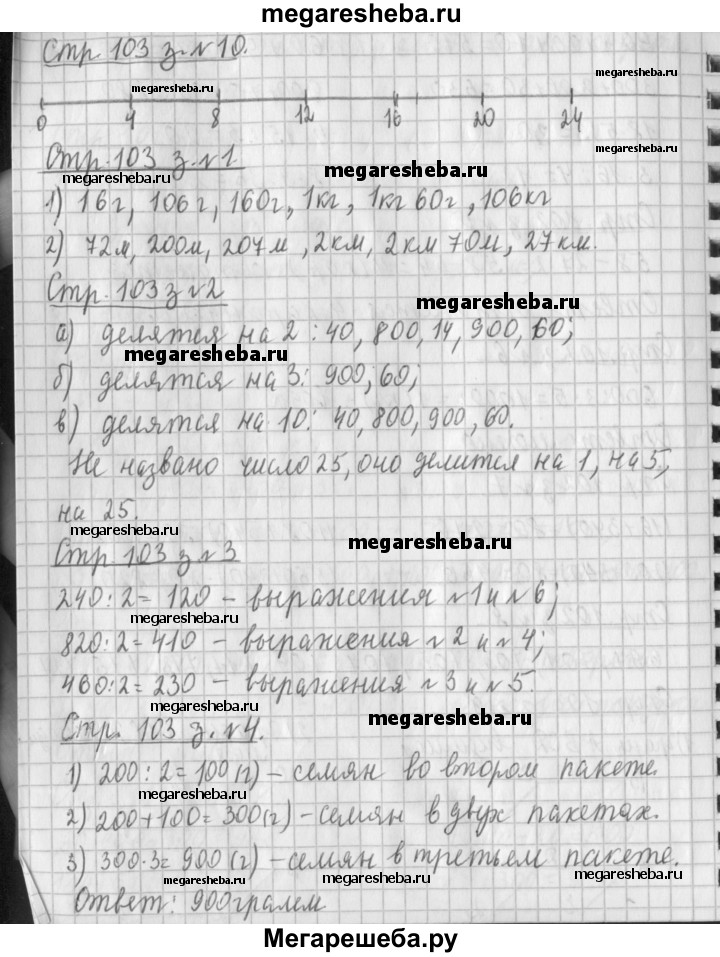 megaresheba.ru
Стр 103 з.№10.
megaresheba.ru
megaresheba.ru
0 4 8 12 16 20 24
megaresheba.ru
Стр. 103 з.№1
megaresheba.ru
megaresheba.ru
1) 16г, 106г, 160г, 1кг, 1кг 60г, 106кг
2) 72м, 200м, 207м, 2км, 2км 70м, 27км.
Стр. 103 з №2
megaresheba.ru
а) делятся на 2 : 40, 800, 14, 900, 60;
megaresheba.ru
б) делятся на 3: 900, 60;
в) делятся на 10: 40, 800, 900, 60.
Не названо число 25, оно делится на 1, на 5,
на 25.
megaresheba.ru
megaresheba.ru
Стр. 103 з №3
240:2= 120 – выражения №1 и №6;
megaresheba.ru
820:2=410 – выражения №2 и №4;
460:2= 230 – выражения №3 и №5.
megaresheba.ru
Стр. 103 з.№4.
megaresheba.ru
1) 200 : 2=100 (г) – семян во втором пакете.
megaresheba.ru
2) 200+100= 300(г) – семян в двух пакетах.
3) 300·3= 900 (г) – семян в третьем пакете.
megaresheba.ru
megaresheba.ru
megaresheba.ru
Ответ: 900 грамм
Мегарешеба.ру